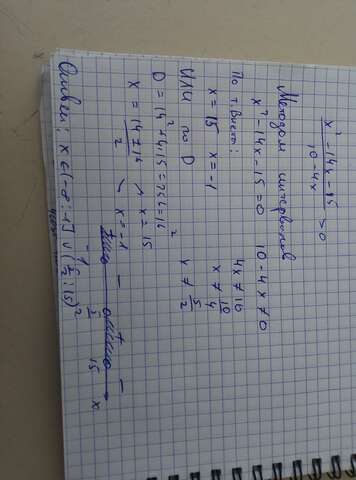 x² - 14x - 15
10 - 4x
>0
Методом интервалов
x² - 14x - 15 = 0   10 - 4x ≠ 0
По т. Виета:   4x ≠ 10
x = 15   x = -1   x ≠ 10/4
Или по D   x ≠ 5/2
D = 14² + 4·15 = 256 = 16²
x = 14 ± 16 / 2   x = 15
x = -1
+ - + -
-1   5/2   15   x
Ответ: x ∈ (-∞; -1] ∪ (5/2; 15)